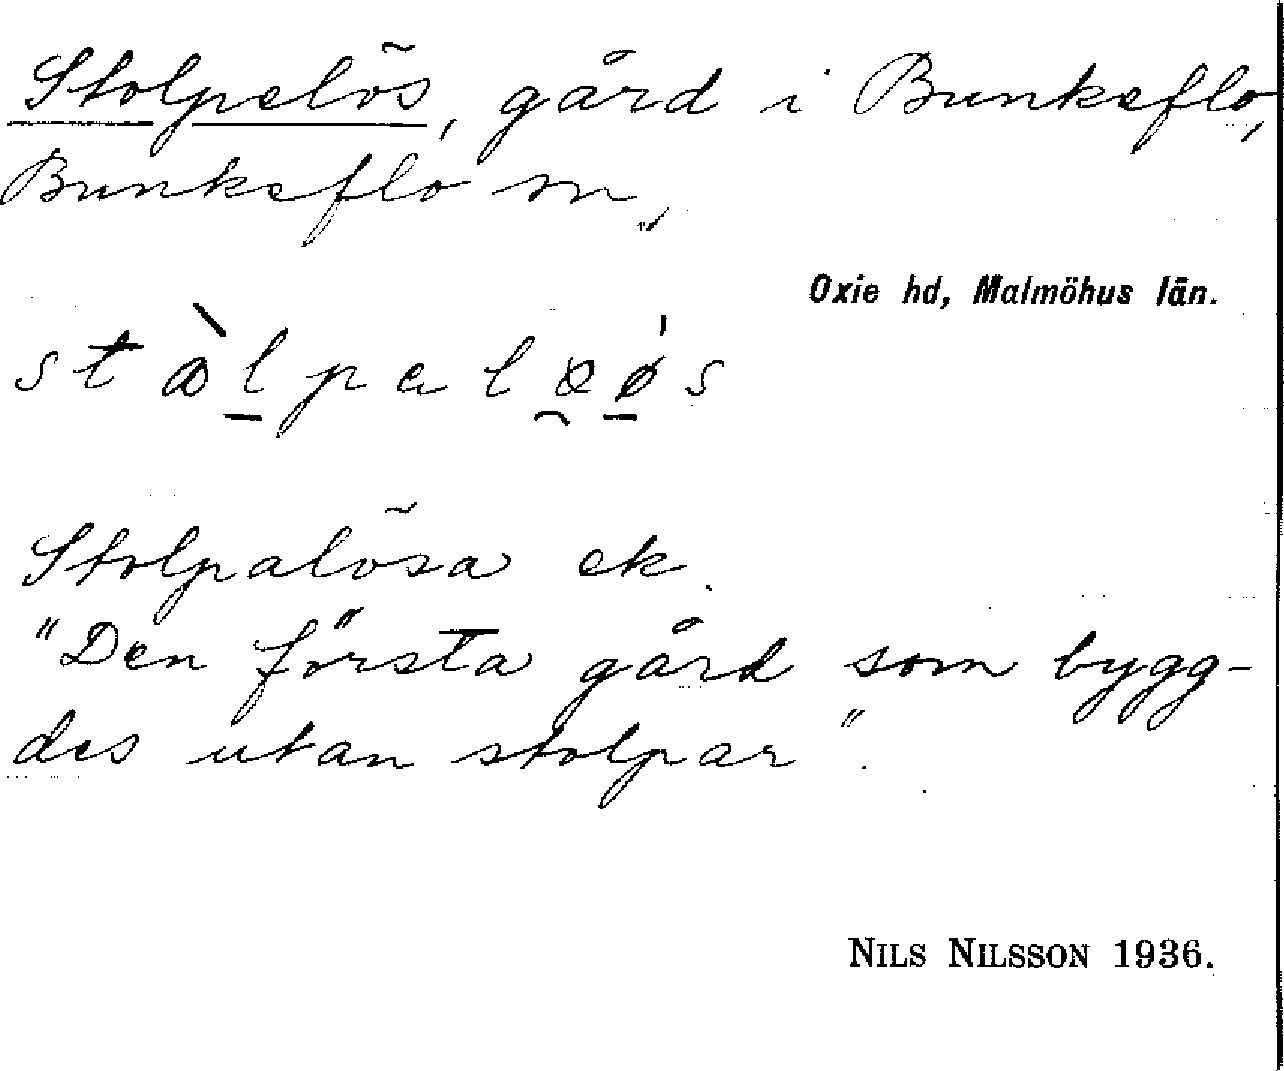 Stolpelös, gård i Bunkeflo,
Bunkeflo sn,
Oxie hd, Malmöhus län.
Stolpalösa ek.
"Den första gård som bygg-
des utan stolpar".
NILS NILSSON 1936.